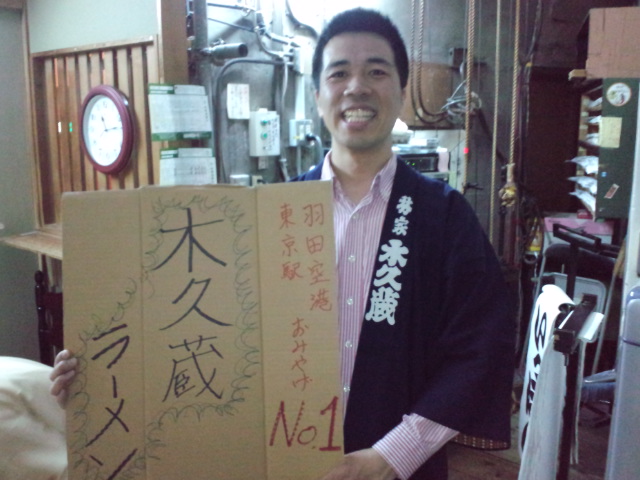 羽田空港
東京駅
おみやげ
No.1
木久蔵
ラーメン
木久蔵